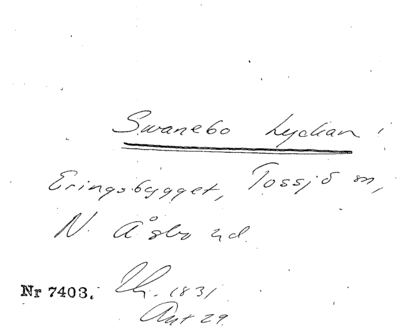 Swanebo Lyckan i
Eringsbygget, Tossjö sn,
N. Åsbo hd.
Nr 7403. Th. 1831
Ant 29.